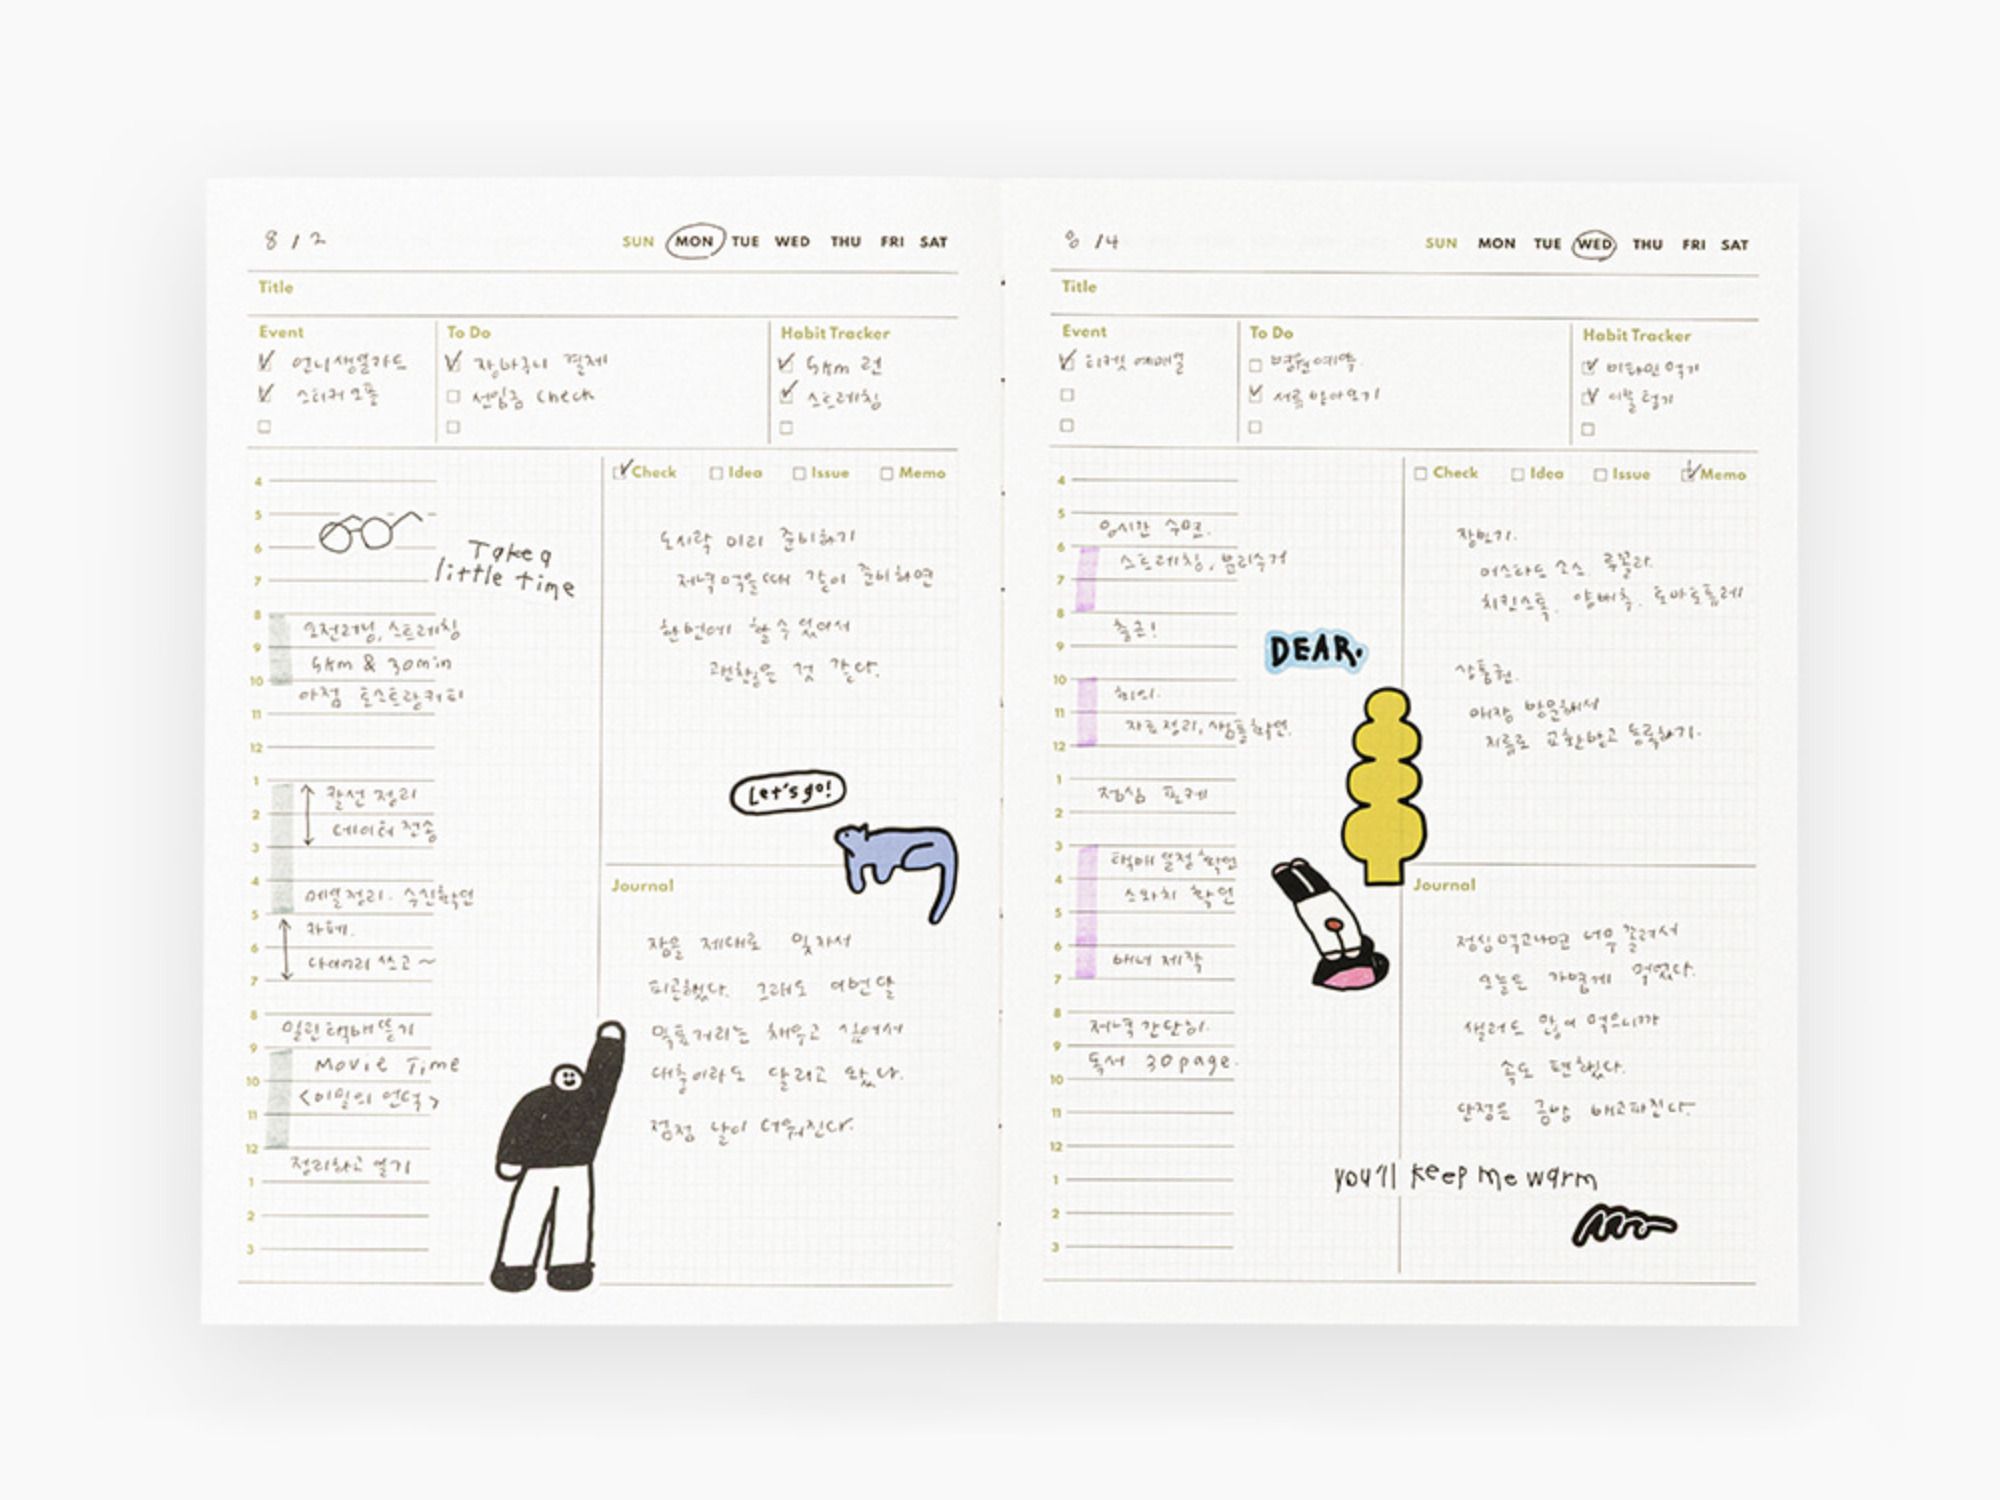 8 / 2
SUN MON TUE WED THU FRI SAT
Title
Event
언니생일카드
스티커 오픈
To Do
장바구니 결제
선입금 check
Habit Tracker
5km 런
스트레칭
Check Idea Issue Memo
4
5
6
7
8
9
10
11
12
1
2
3
4
5
6
7
8
9
10
11
12
1
2
3
Take a
little time
오전러닝, 스트레칭
5km & 30min
아점 토스트랑 커피
칼선 정리
데이터 전송
메일정리. 수신확인
카페.
다이어리 쓰고~
밀린 택배 뜯기
Movie Time
<비밀의 언덕>
정리하고 열기
도시락 미리 준비하기
저녁 먹을때 같이 준비하면
한번에 할 수 있어서
괜찮은 것 같다.
Let's go!
Journal
잠을 제대로 못자서
피곤했다. 그래도 이번달
목표거리는 채우고 싶어서
대충이라도 달리고 왔다.
점점 날이 더워진다.
8 / 4
SUN MON TUE WED THU FRI SAT
Title
Event
티켓 예매일
To Do
병원예약.
서류 받아오기
Habit Tracker
비타민 먹기
이불 털기
Check Idea Issue Memo
4
5
6
7
8
9
10
11
12
1
2
3
4
5
6
7
8
9
10
11
12
1
2
3
수면.
스트레칭, 분리수거
출근!
회의.
자료정리, 샘플확인.
점심 포케
택배 일정 확인
스와치 확인
배너 제작
저녁 간단히.
독서 30page.
장보기.
머스타드 소스. 루꼴라.
치킨스톡. 양배추. 토마토퓨레
상품권.
매장 방문해서
지류로 교환받고 등록하기.
DEAR.
Journal
점심 먹고나면 너무 졸려서
오늘은 가볍게 먹었다.
샐러드 많이 먹으니까
속도 편했다.
단점은 금방 배고파진다.
you'll keep me warm